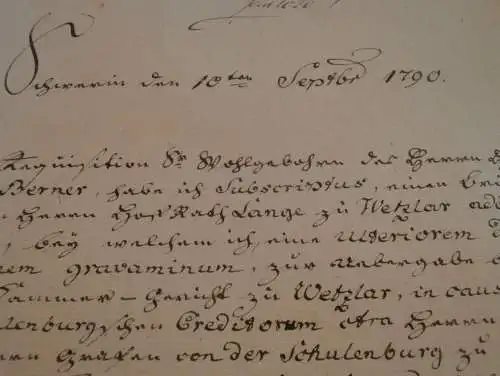 Schwerin den 10ten Septbr 1790.
Requisition Sr Wohlgebohren des Herrn
Berner, habe ich Subscriptus, einen
Herrn Hoff Rath Lange zu Wetzlar
bey welchem ich, eine Ulteriorem
gravaminum, zur Uebergabe
Cammer-Gericht zu Wetzlar, in caus
lenburgschen Creditorum ctra Herrn
Grafen von der Schulenburg zu